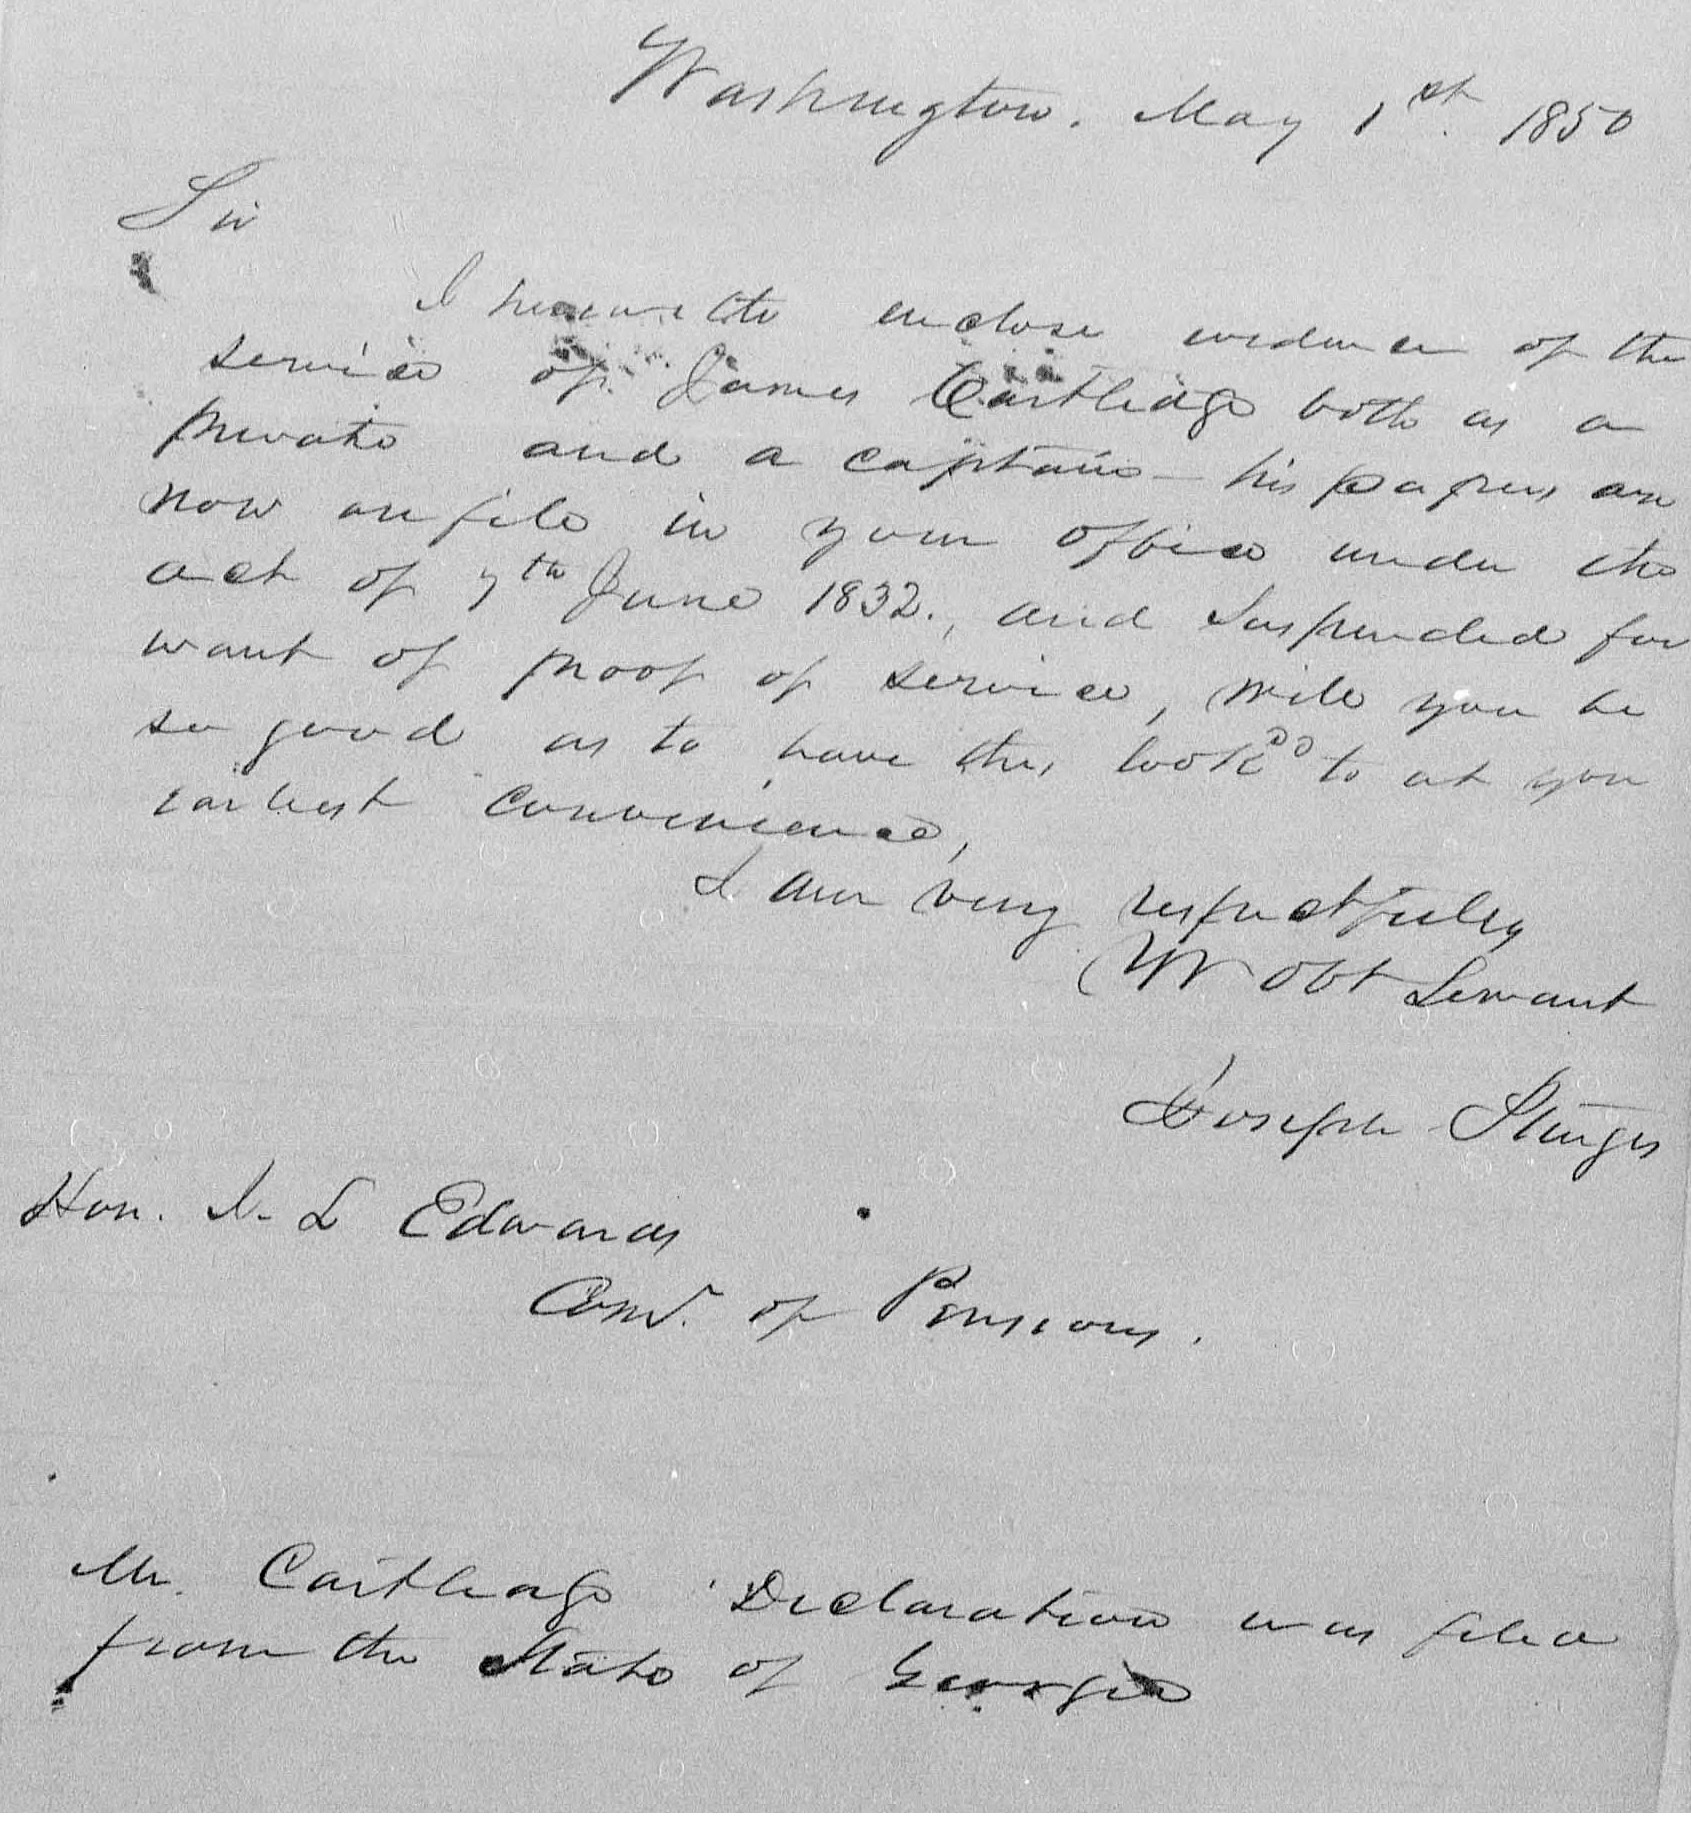 Washington. May 1st. 1850
Sir
I herewith enclose evidence of the
service of James Cartledge both as a
private and a captain - his papers are
now on file in your office under the
act of 7th June 1832., and suspended for
want of proof of service, will you be
so good as to have this look'd to at you
earliest convenience,
I am very respectfully
Yr obt Servant
Joseph Sturges
Hon. J. L Edwards
Comr. of Pensions.
Mr. Cartledge Declaration was filed
from the State of Georgia